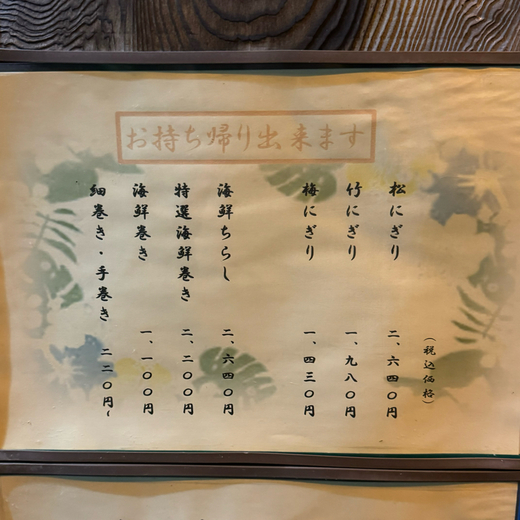 お持ち帰り出来ます
（税込価格）
松にぎり 二、六四〇円
竹にぎり 一、九八〇円
梅にぎり 一、四三〇円
海鮮ちらし 二、六四〇円
特選海鮮巻き 二、二〇〇円
海鮮巻き 一、一〇〇円
細巻き・手巻き 二二〇円~